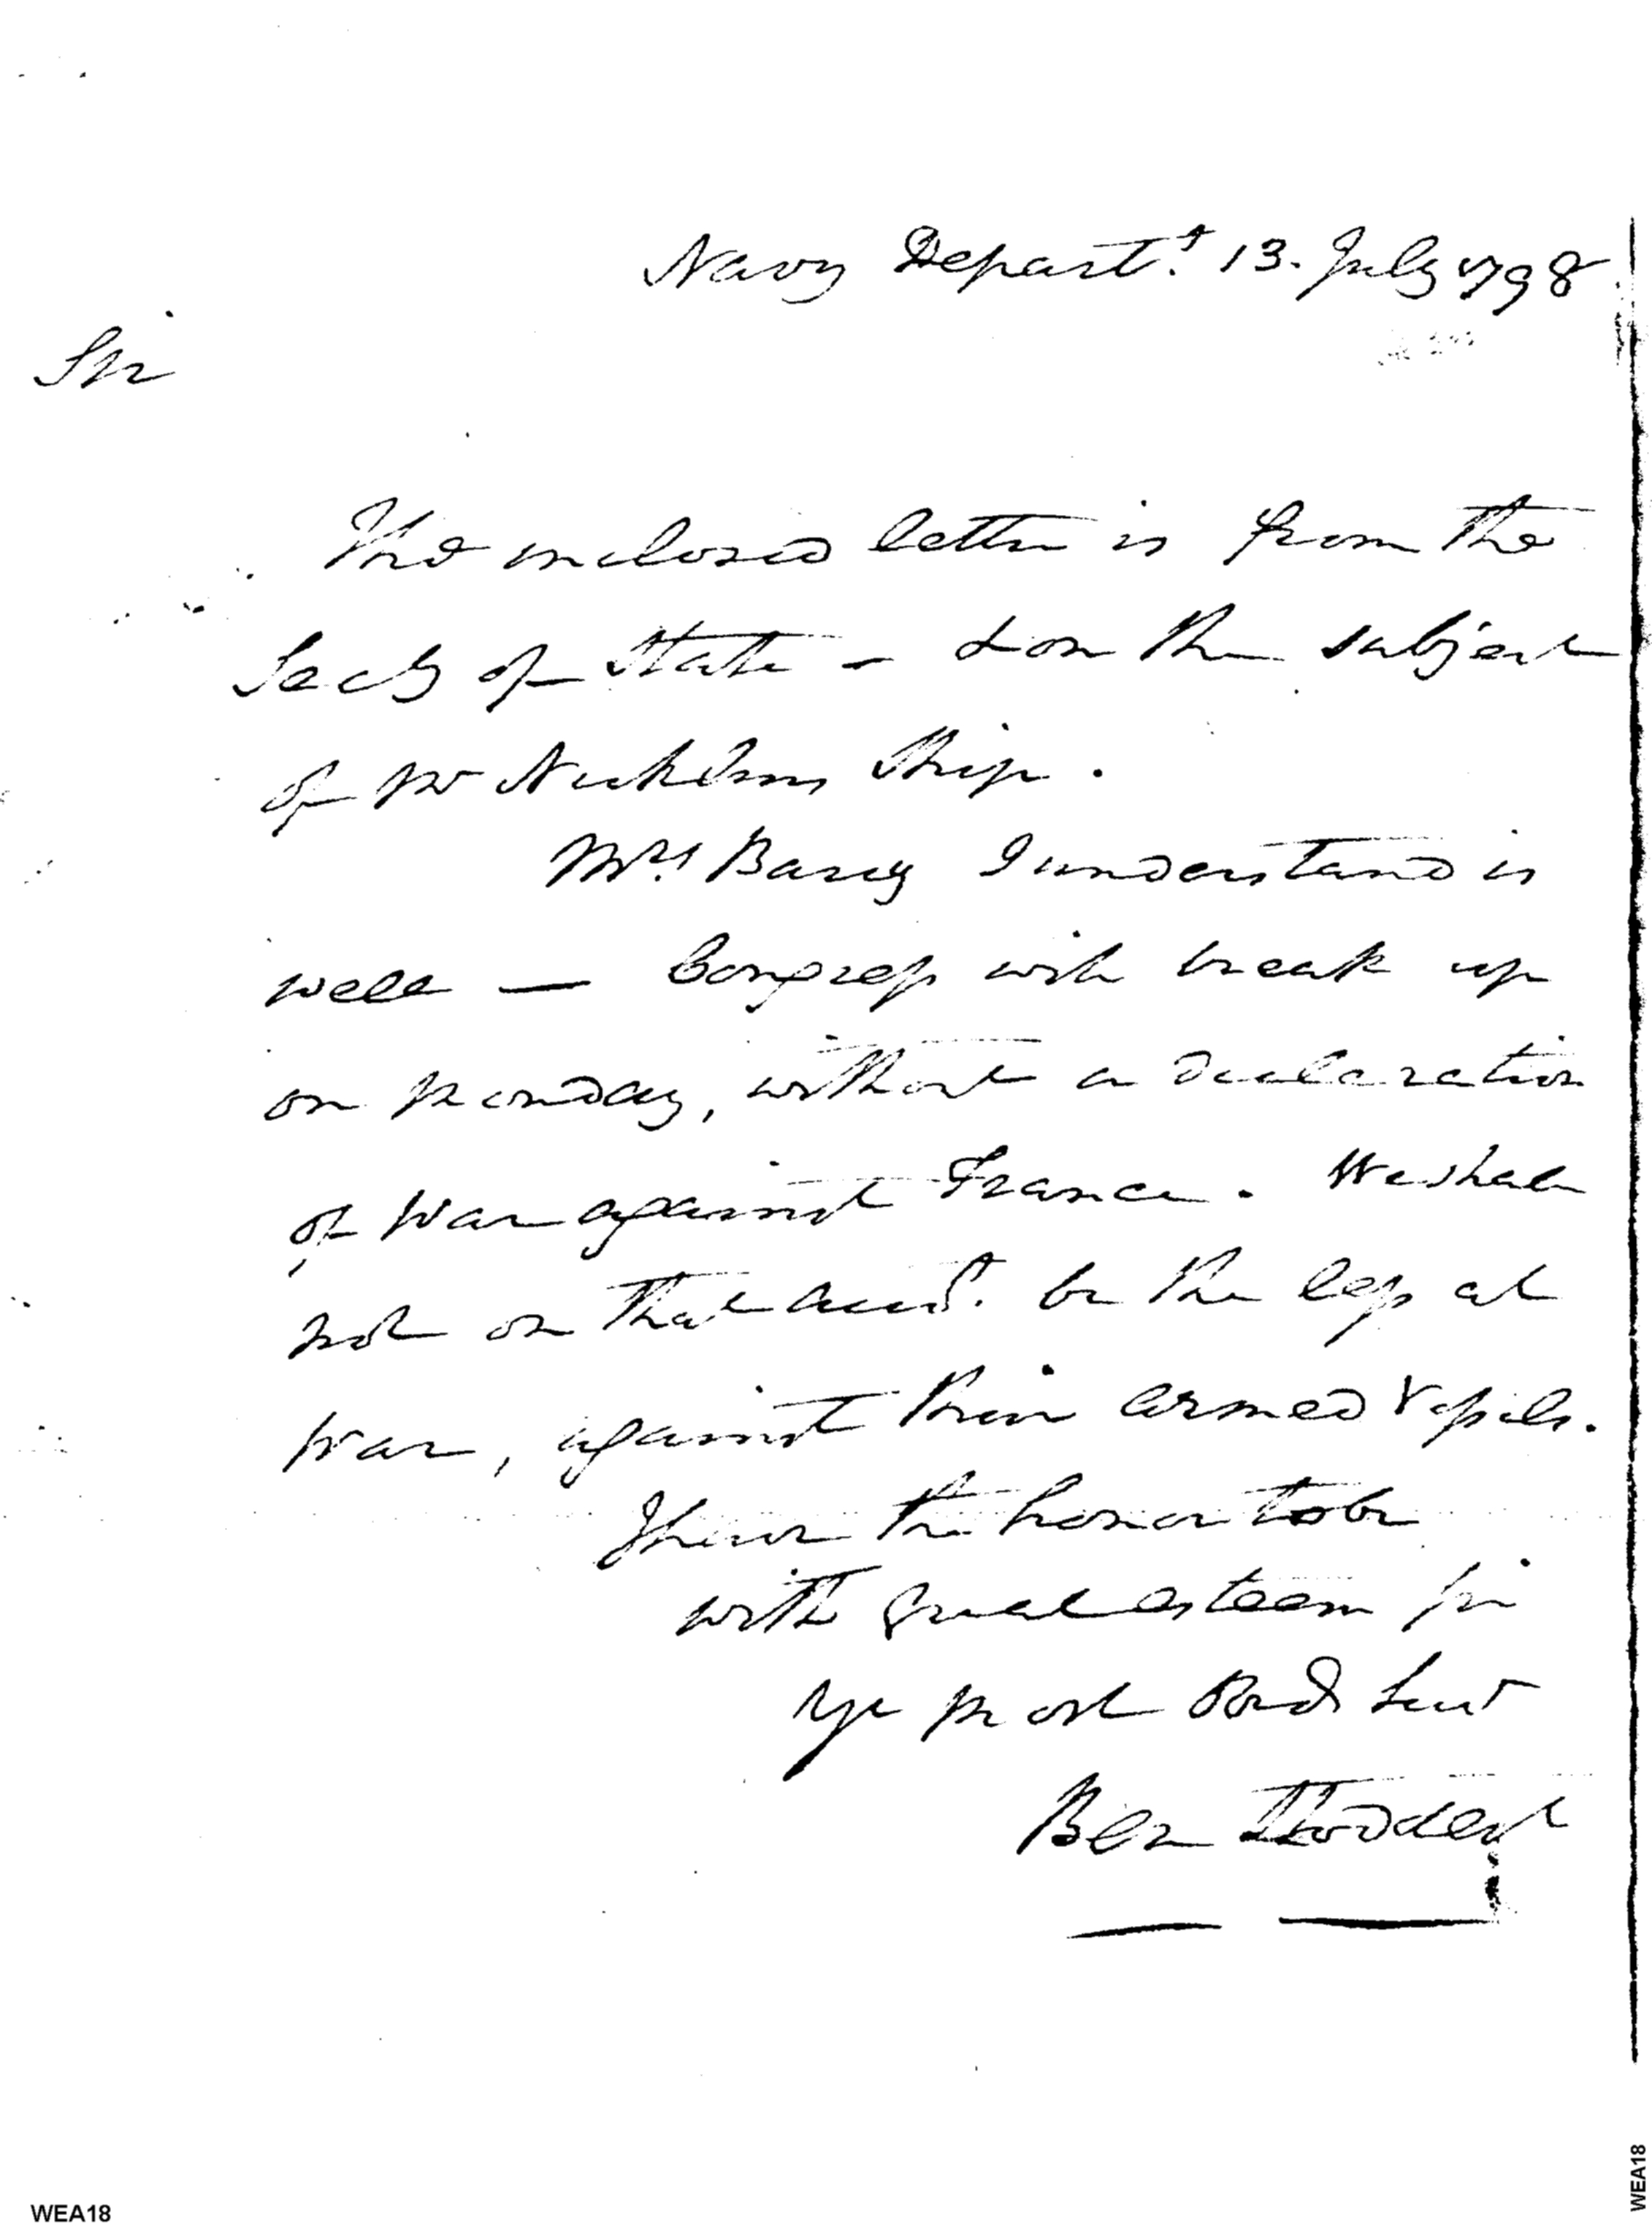 Navy Depart.t 13. July 1798
Sir
The inclosed letter is from the
Secy of State – & on the subject
of Mr Nicklins Ship.
Mrs. Barry I understand is
well — Congress will break up
on Monday, without a declaration
of War against France. We shall
not on that acct. be the less at
War, against their armed Vessels.
I have the honor to be
with great esteem Sir
Yr most Obed Servt
Ben Stoddert
WEA18
WEA18